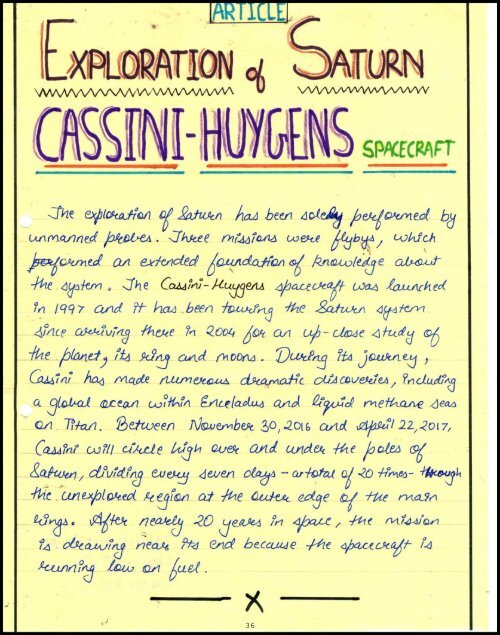 ARTICLE
EXPLORATION of SATURN
CASSINI-HUYGENS SPACECRAFT
The exploration of Saturn has been solely performed by
unmanned probes. Three missions were flybys, which
performed an extended foundation of knowledge about
the system. The Cassini-Huygens spacecraft was launched
in 1997 and it has been touring the Saturn system
since arriving there in 2004 for an up-close study of
the planet, its ring and moons. During its journey,
Cassini has made numerous dramatic discoveries, including
a global ocean within Enceladus and liquid methane seas
on Titan. Between November 30, 2016 and April 22, 2017,
Cassini will circle high over and under the poles of
Saturn, dividing every seven days - a total of 20 times - through
the unexplored region at the outer edge of the main
rings. After nearly 20 years in space, the mission
is drawing near its end because the spacecraft is
running low on fuel.
X
36